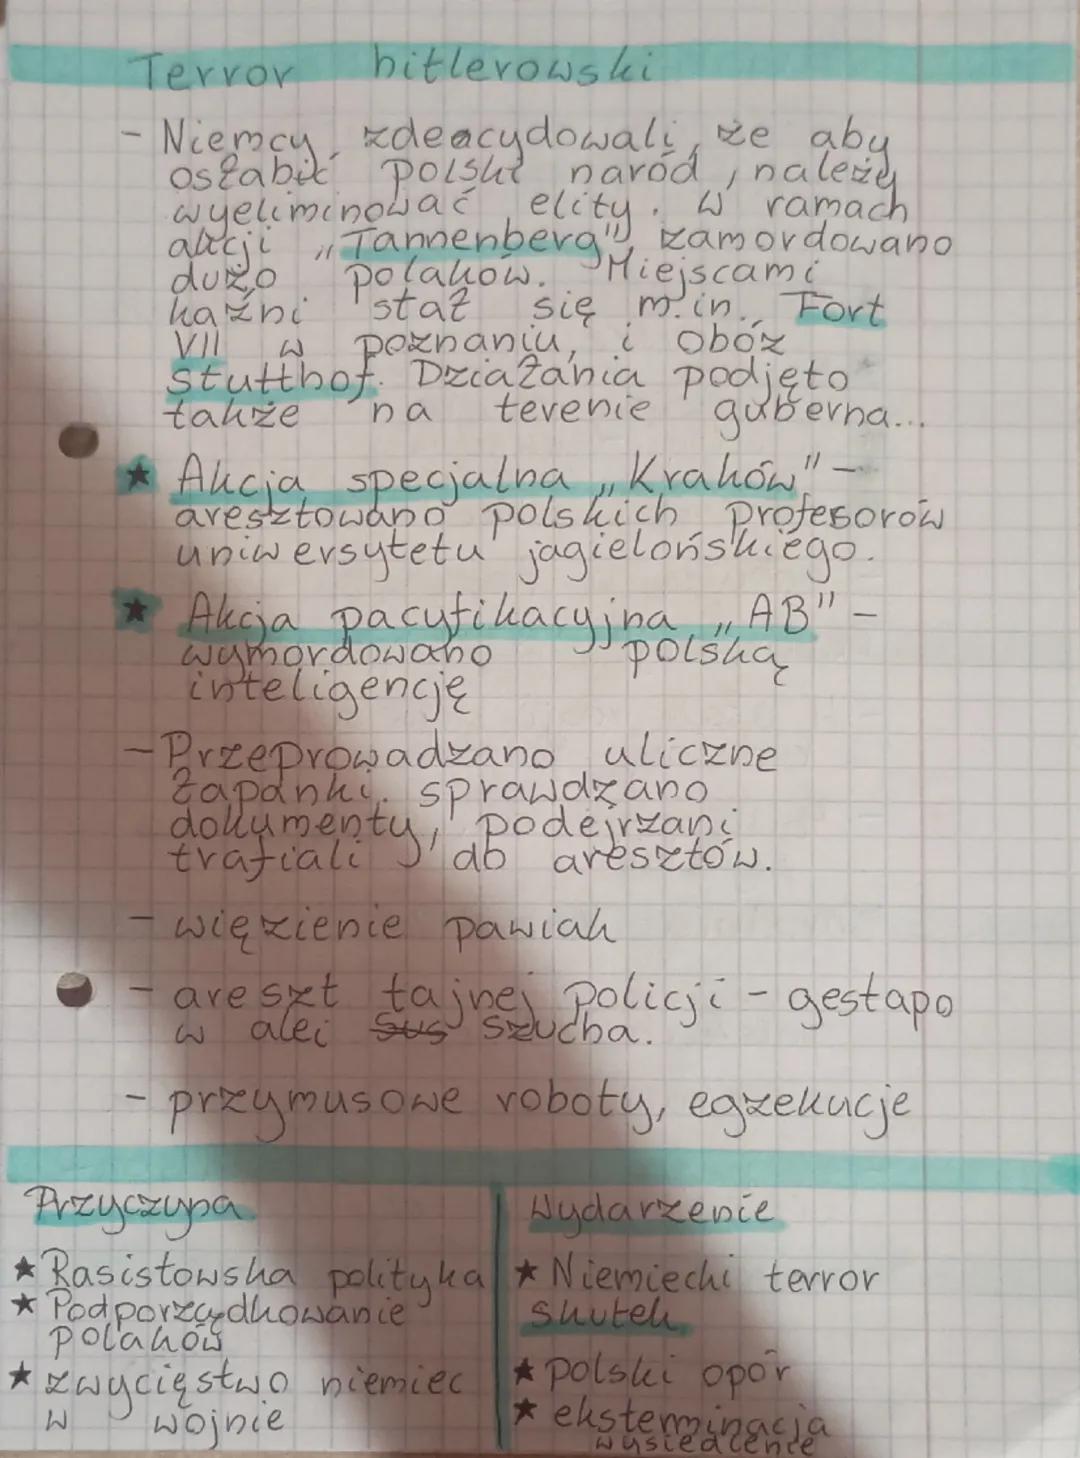 Terror hitlerowski
- Niemcy zdeacydowali, że aby
osłabić polski naród, należy
wyeliminować elity. W ramach
akcji „Tannenberg", zamordowano
dużo polaków. Miejscami
kaźni stał się m.in. Fort
VII w poznaniu, i obóz
stutthof. Działania podjęto
także na terenie guberna...
★ Akcja specjalna „Kraków" -
aresztowano polskich profesorów
uniwersytetu jagielońskiego.
★ Akcja pacyfikacyjna „AB" -
wymordowano polską
inteligencję
- Przeprowadzano uliczne
łapanki. sprawdzano
dokumenty, podejrzani
trafiali do aresztów.
- więzienie pawiak
- areszt tajnej policji - gestapo
w alei sus szucha.
- przymusowe roboty, egzekucje
Przyczyna
★ Rasistowska polityka
★ Podporządkowanie
polaków
★ zwycięstwo niemiec
w wojnie
Wydarzenie
★ Niemiecki terror
skutek
★ polski opór
★ eksterminacja
wysiedlenie